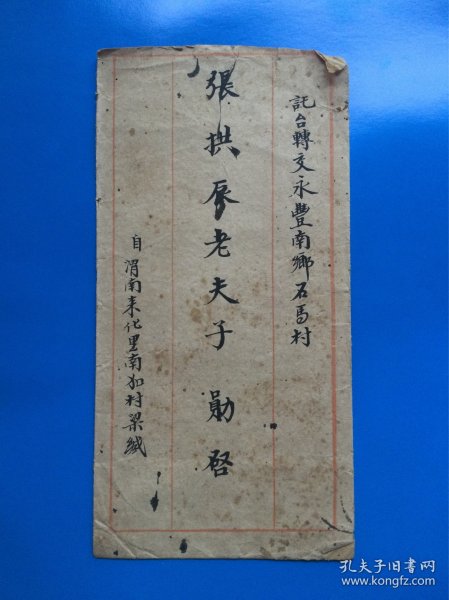 託台轉交永豐南鄉石馬村
張拱辰老夫子 勛啓
自渭南来化里南如村梁緘
孔夫子旧书网
www.kongfz.com